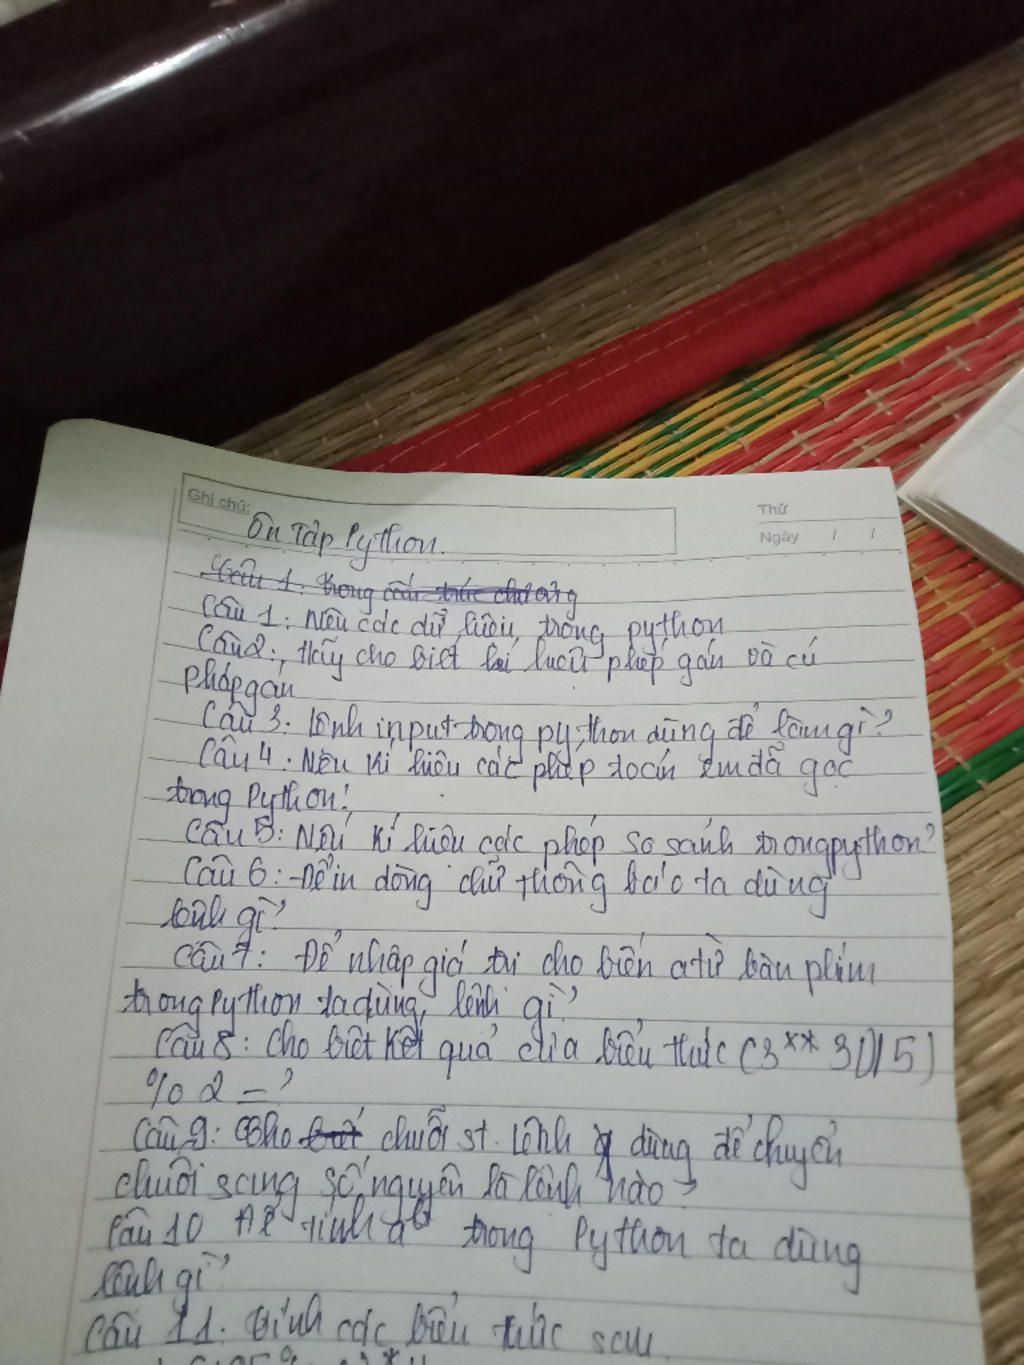 Ghi chú:
Ôn Tập Python.
Thứ
Ngày / /
Câu 1: trong cấu trúc chương
Câu 1: Nêu các dữ liệu trong python
Câu 2: Hãy cho biết kí hiệu phép gán và cú
pháp gán
Câu 3: Lệnh input trong python dùng để làm gì?
Câu 4: Nêu kí hiệu các phép toán em đã gọc
trong Python?
Câu 5: Nêu kí hiệu các phép so sánh trong python?
Câu 6: Để in dòng chữ thông báo ta dùng
lệnh gì?
Câu 7: Để nhập giá trị cho biến a từ bàn phím
trong Python ta dùng lệnh gì?
Câu 8: Cho biết kết quả của biểu thức (3**3//5)
% 2 = ?
Câu 9: Cho chuỗi st. Lệnh dùng để chuyển
chuỗi sang số nguyên là lệnh nào?
Câu 10 Để tính a trong Python ta dùng
lệnh gì?
Câu 11. Tính các biểu thức sau